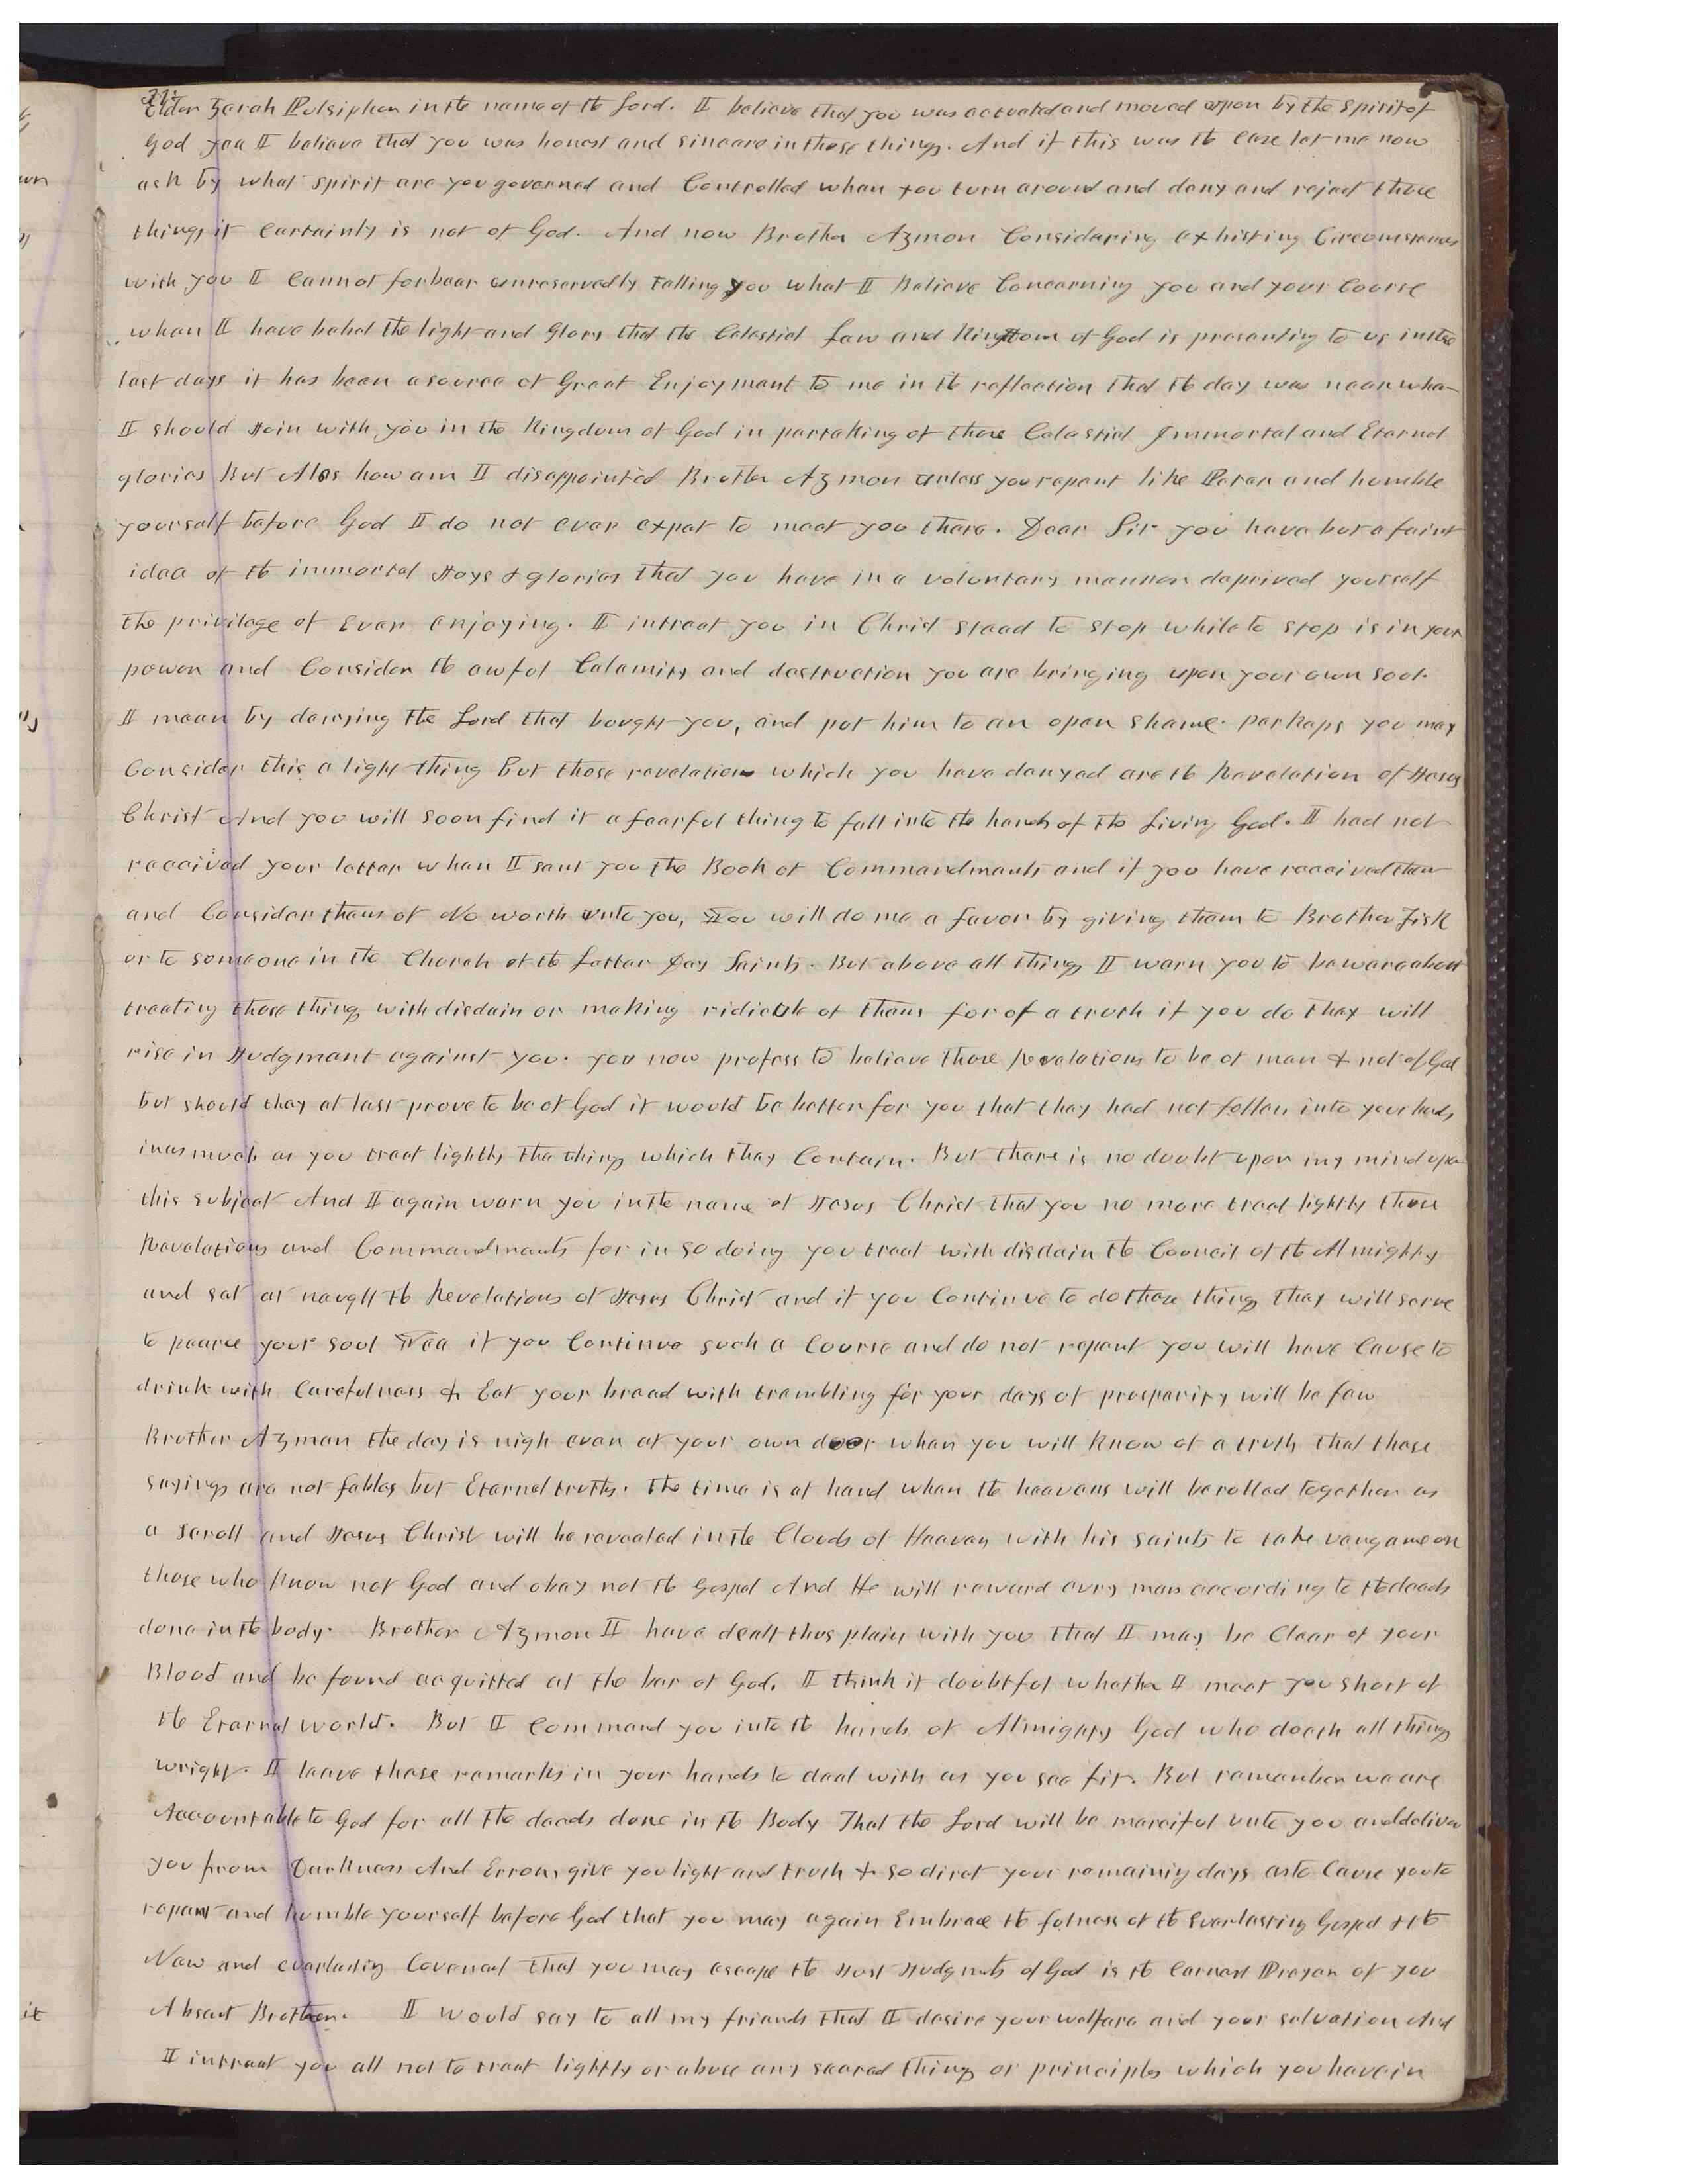 Elder Zerah Pulsipher in the name of the Lord. I believe that you was actuated and moved upon by the spirit of
God yea I believe that you was honest and sinceare in those things. And if this was the case let me now
ask by what spirit are you governed and Controlled when you turn around and deny and reject those
things it certainly is not of God. And now Brother Azmon Considering exhisting Circumstances
with you I cannot forbear unreservedly telling you what I Believe Concerning you and your Course
when I have behel the light and Glory that the Celestial Law and Kingdom of God is presenting to us in the
last days it has been a source of Great Enjoyment to me in the reflection that the day was near when
I should Join with you in the Kingdom of God in partaking of those Celestial Immortal and Eternal
glories But Alas how am I disappointed Brother Azmon unless you repent like Peter and humble
yourself before God I do not ever expet to meet you there. Dear Sir you have but a faint
idea of the immortal Joys & glories that you have in a voluntary manner deprived yourself
the privilege of Ever enjoying. I intreat you in Christ stead to stop while to stop is in your
power and Consider the awful Calamity and destruction you are bringing upon your own soul.
I mean by denying the Lord that bought you, and put him to an open shame. perhaps you may
Consider this a light thing But those revelations which you have denyed are the Revelation of Jesus
Christ And you will soon find it a fearful thing to fall into the hands of the Living God. I had not
received your letter when I sent you the Book of Commandments and if you have received them
and Consider them of No worth unto you, You will do me a favor by giving them to Brother Fisk
or to someone in the Church of the Latter Day Saints. But above all things I warn you to beware about
treating those things with disdain or making ridicule of them for of a truth if you do they will
rise in Judgment against you. you now profess to believe those Revelations to be of man & not of God
but should they at last prove to be of God it would be better for you that they had not fallen into your hands
inasmuch as you treat lightly the things which they Contain. But there is no doubt upon my mind upon
this subject And I again warn you in the name of Jesus Christ that you no more treat lightly those
Revelations and Commandments for in so doing you treat with disdain the Council of the Almighty
and set at naught the Revelations of Jesus Christ and if you Continue to do those things they will serve
to pearce your soul Yea if you Continue such a Course and do not repent you will have Cause to
drink with Carefulness & Eat your bread with trembling for your days of prosperity will be few
Brother Azmon the day is nigh even at your own door when you will know of a truth that those
sayings are not fables but Eternal truths. the time is at hand when the heavens will be rolled together as
a scroll and Jesus Christ will be revealed in the Clouds of Heaven with his saints to take vengance on
those who know not God and obey not the Gospel And He will reward evry man according to the deeds
done in the body. Brother Azmon I have dealt thus plain with you that I may be Clear of your
Blood and be found acquitted at the bar of God. I think it doubtful whether I meet you short of
the Eternal world. But I commend you into the hands of Almighty God who doeth all things
wright. I leave those remarks in your hands to deal with as you see fit. But remember we are
Accountable to God for all the deeds done in the Body That the Lord will be merciful unto you and deliver
you from Darkness And Errors give you light and truth & so diret your remaining days as to Cause you to
repent and humble yourself before God that you may again Embrace the fulness of the Everlasting Gospel & the
New and everlasting Covenant that you may escape the Just Judgments of God is the Earnest Prayer of you
Absent Brother. I would say to all my friends that I desire your welfare and your salvation And
I intreat you all not to treat lightly or abuse any sacred things or principles which you have in